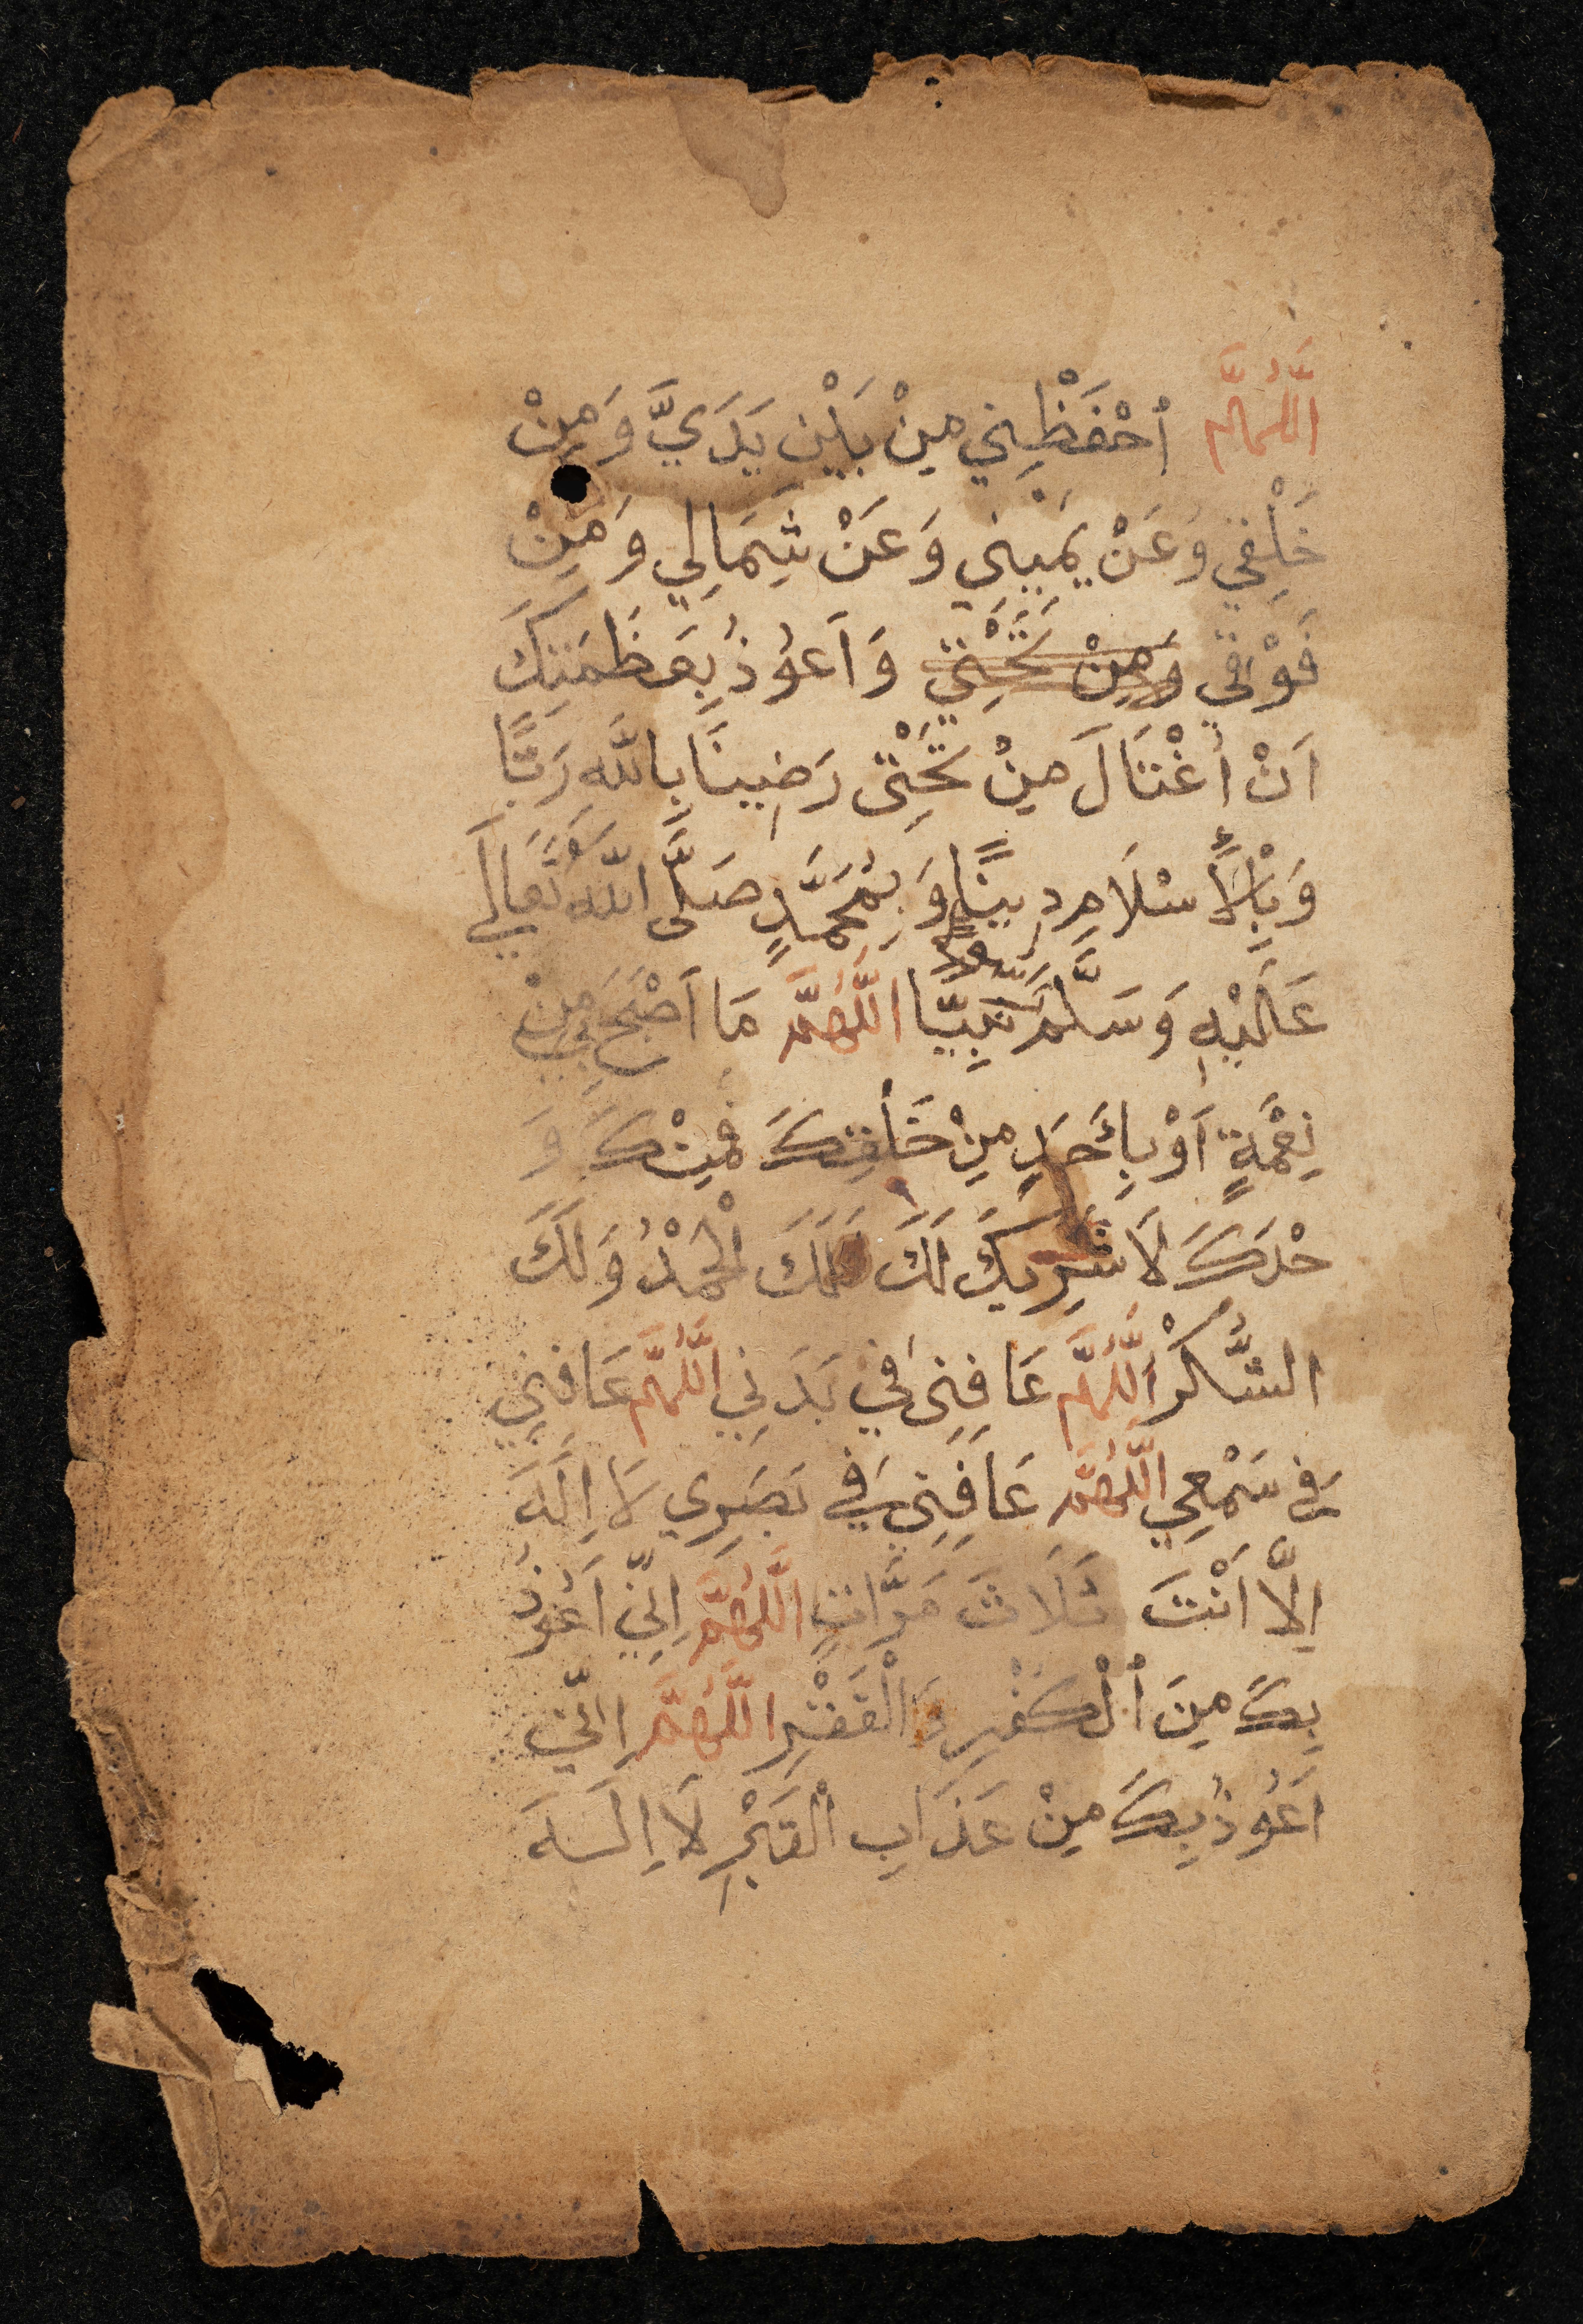 اللَّهُمَّ ٱحْفَظْنِي مِنْ بَيْنِ يَدَيَّ وَمِنْ
خَلْفِي وَعَنْ يَمِيْنِي وَعَنْ شِمَالِي وَمِنْ
فَوْقِي وَمِنْ تَحْتِي وَاَعُوْذُ بِعَظَمَتِكَ
اَنْ أُغْتَالَ مِنْ تَحْتِى رَضِينَا بِاللَّهِ رَبًّا
وَبِالْأِسْلَامِ دِينًا وَبِمُحَمَّدٍ صَلَّى اللّٰهُ تَعَالَى
رَسُولًا
عَلَيْهِ وَسَلَّمَ نَبِيًّا اللَّهُمَّ مَا اَصْبَحَ بِي مِنْ
نِعْمَةٍ اَوْ بِأَحَدٍ مِنْ خَلْقِكَ فَمِنْكَ وَ
حْدَكَ لَا شَرِيكَ لَكَ فَلَكَ الْحَمْدُ وَلَكَ
الشُّكْرُ اَللَّهُمَّ عَافِنِى فِي بَدَنِي اللَّهُمَّ عَافِنِي
فِي سَمْعِي اللَّهُمَّ عَافِنِي فِي بَصَرِي لَا اِلَهَ
اِلَّا اَنْتَ ثَلَاثَ مَرَّاتٍ اللَّهُمَّ اِنِّي اَعُوْذُ
بِكَ مِنَ ٱلْكُفْرِ وَالْفَقْرِ اللَّهُمَّ اِنِّي
اَعُوْذُ بِكَ مِنْ عَذَابِ الْقَبْرِ لَا اِلَهَ